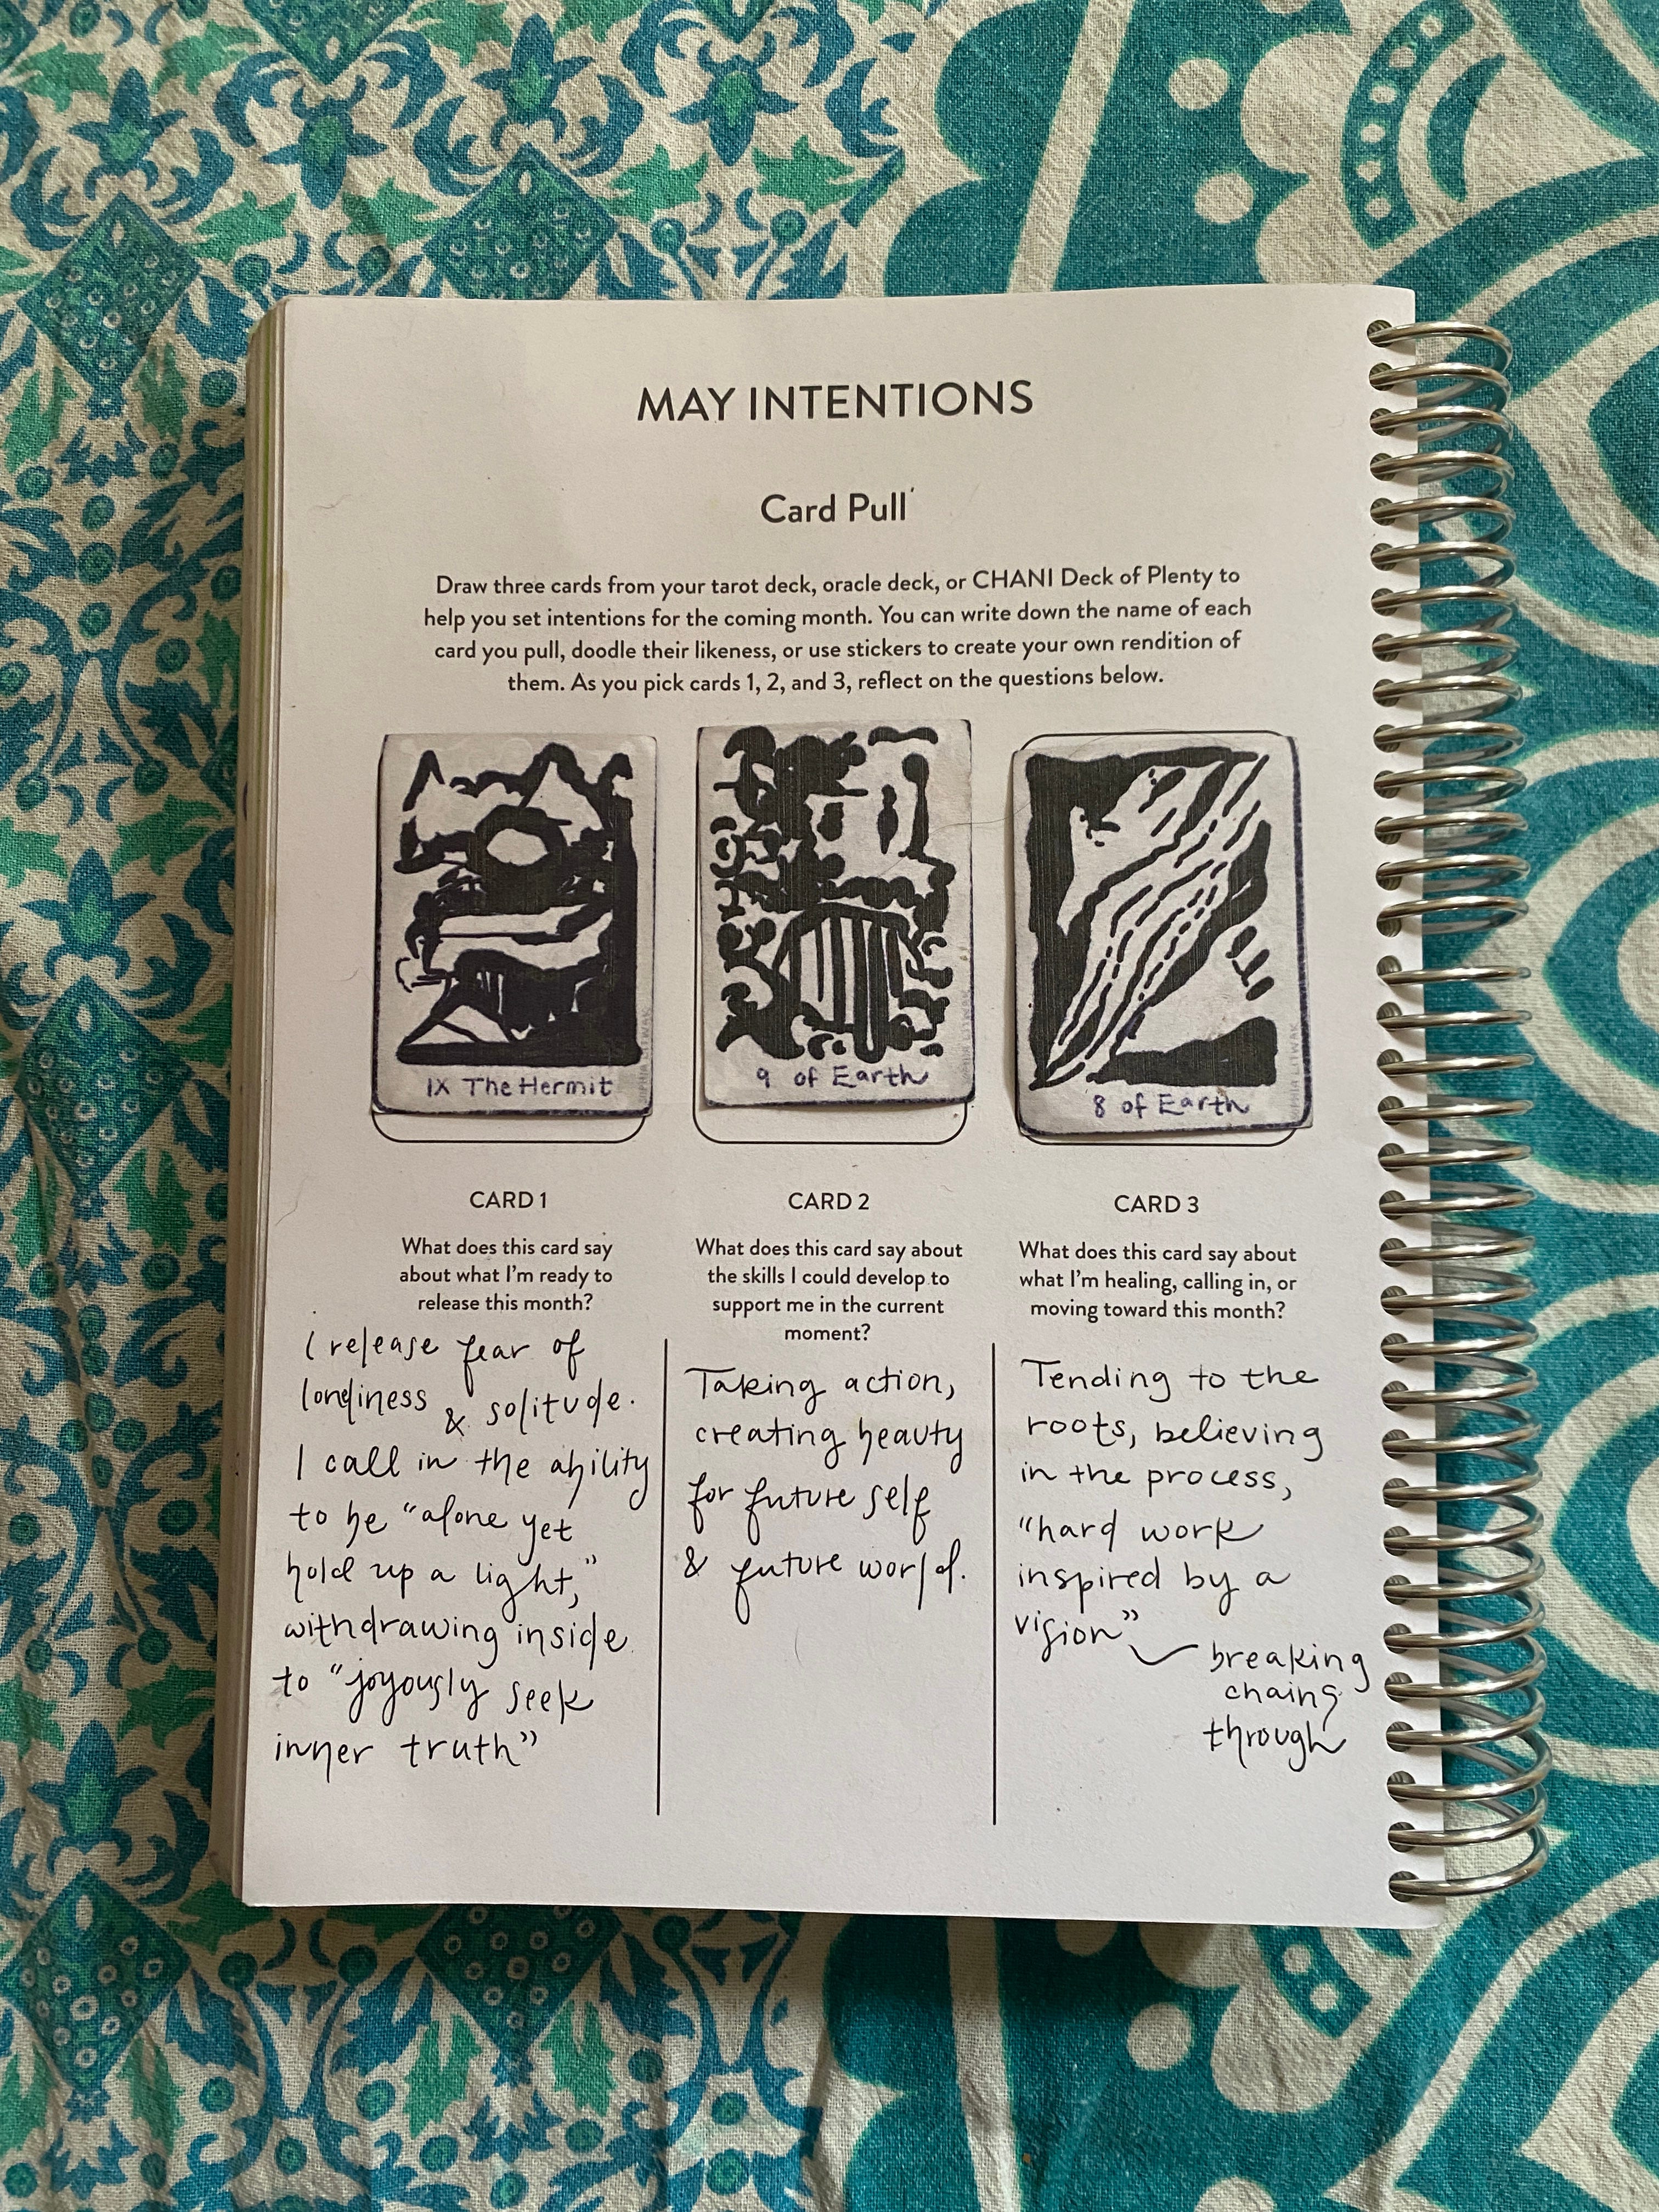 MAY INTENTIONS
Card Pull
Draw three cards from your tarot deck, oracle deck, or CHANI Deck of Plenty to
help you set intentions for the coming month. You can write down the name of each
card you pull, doodle their likeness, or use stickers to create your own rendition of
them. As you pick cards 1, 2, and 3, reflect on the questions below.
IX The Hermit
9 of Earth
8 of Earth
CARD 1
What does this card say
about what I'm ready to
release this month?
I release fear of
loneliness & solitude.
I call in the ability
to be "alone yet
hold up a light,"
withdrawing inside
to "joyously seek
inner truth"
CARD 2
What does this card say about
the skills I could develop to
support me in the current
moment?
Taking action,
creating beauty
for future self
& future world.
CARD 3
What does this card say about
what I'm healing, calling in, or
moving toward this month?
Tending to the
roots, believing
in the process,
"hard work
inspired by a
vision"
breaking
chains
through